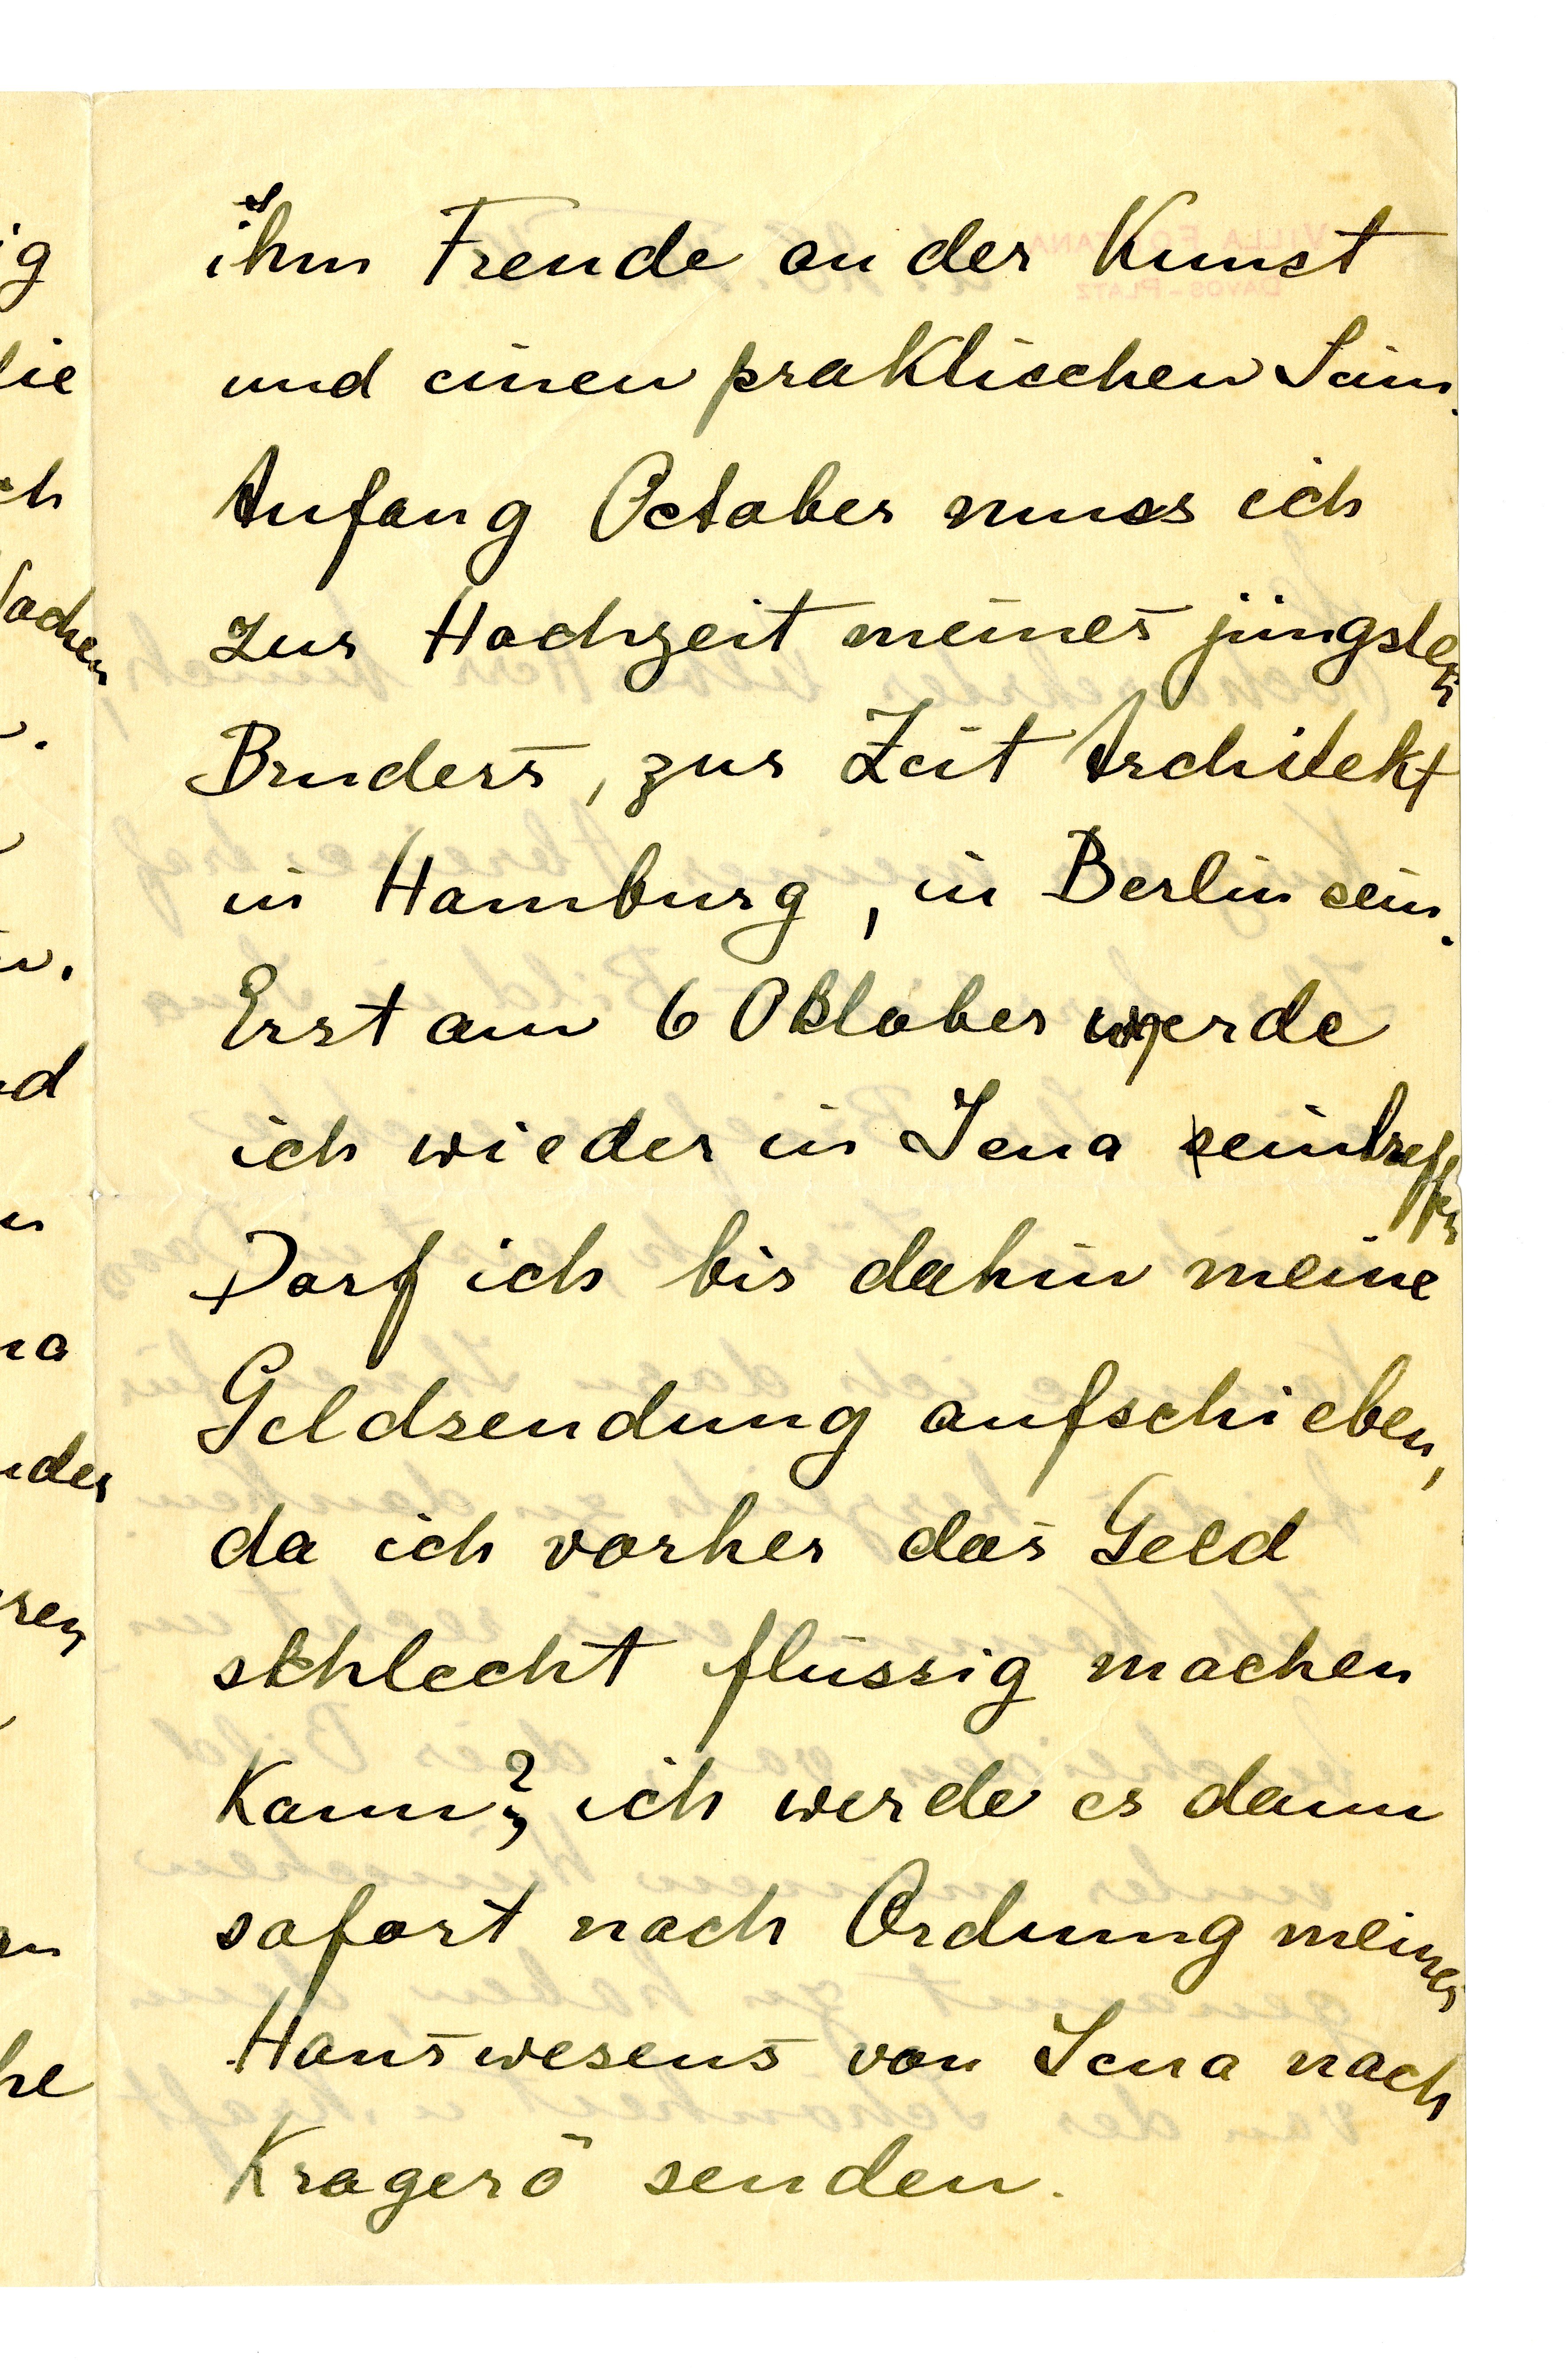 ihm Freude an der Kunst
und einen praktischen Sinn.
Anfang October muss ich
zur Hochzeit meines jüngsten
Bruders, zur Zeit Architekt
in Hamburg, in Berlin sein.
Erst am 6 Oktober werde
ich wieder in Jena eintreffen
Darf ich bis dahin meine
Geldsendung aufschieben,
da ich vorher das Geld
schlecht flüssig machen
kann? ich werde es dann
sofort nach Ordnung meines
Hauswesens von Jena nach
Kragerö senden.